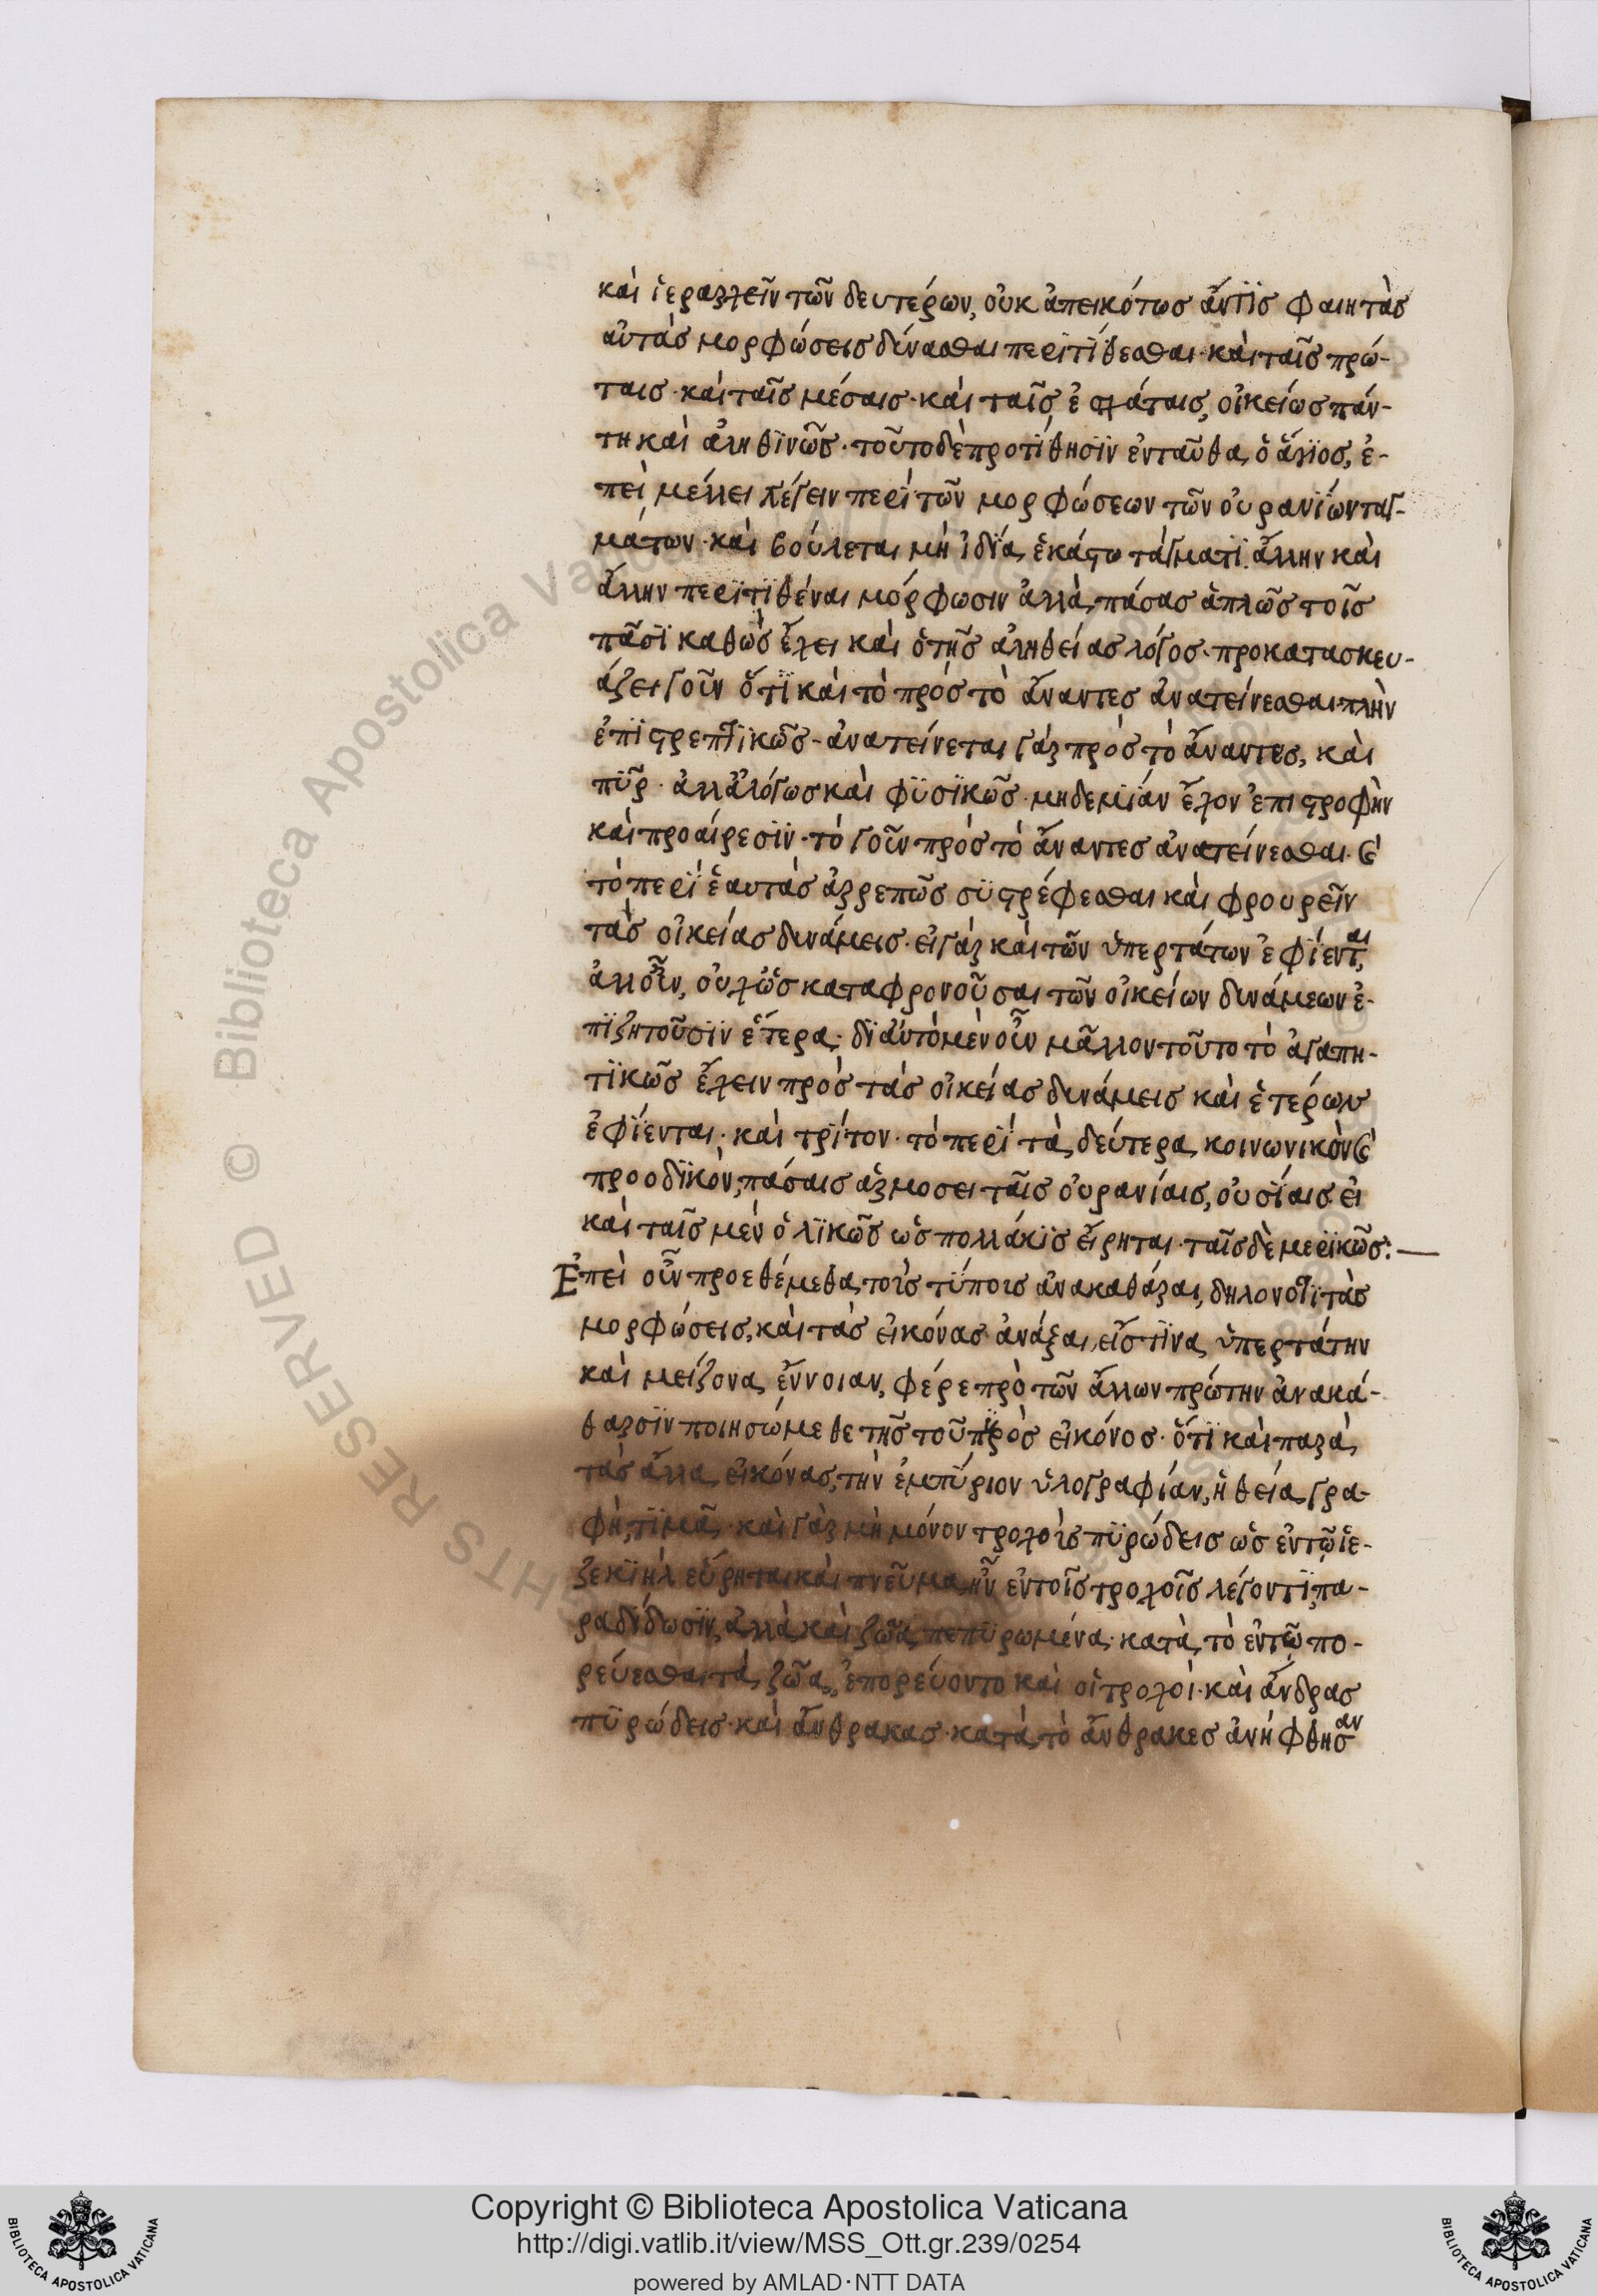 καὶ ἱεραρχεῖν τῶν δευτέρων, οὐκ ἀπεικότως ἄντϊς φαιη τὰς
αὐτάς μορφώσεις δύνασθαι περιτίθεσθαι· καὶ ταῖς πρώ-
ταις· καὶ ταῖς μέσαις· καὶ ταῖς ἐσχάταις, οἰκείως πάν-
τη καὶ ἀληθϊνῶς· τοῦτο δὲ προτίθησϊν ἐνταῦθα, ὁ ἅγϊος, ἐ-
πεὶ μέλλει λέγειν περὶ τῶν μορφώσεων τῶν οὐρανίων ταγ-
μάτων· καὶ βούλεται μὴ ἰδία, ἑκάστω τάγματϊ ἄλλην καὶ
ἄλλην περϊτϊθέναι μόρφωσιν ἀλλὰ, πάσας ἁπλῶς τοῖς
πᾶσϊ καθὼς ἔχει καὶ ὁ τῆς ἀληθείας λόγος· προκατασκευ-
άζει γοῦν ὅτϊ καὶ τὸ πρὸς τὸ ἄναντες ἀνατείνεσθαι πλὴν
ἐπϊστρεπτϊκῶς- ἀνατείνεται γὰρ πρὸς τὸ ἄναντες, καὶ
πῦρ· ἀλλ᾽ ἀλόγως καὶ φϋσϊκῶς· μηδεμϊάν ἔχον ἐπιστροφὴν
καὶ προαίρεσϊν· τό γοῦν πρὸς τὸ ἄναντες ἀνατείνεσθαι· καὶ
τὸ περὶ ἑαυτάς ἀρρεπῶς σϋστρέφεσθαι καὶ φρουρεῖν
τὰς οἰκείας δυνάμεις· εἰ γὰρ καὶ τῶν ὑπερτάτων ἐφϊενται,
ἀλλ᾽ οὖν, οὐχ ὡς καταφρονοῦσαι τῶν οἰκείων δυνάμεων ἐ-
πϊζητοῦσϊν ἕτερα· δϊ αὐτὸ μὲν οὖν μᾶλλον τοῦτο τὸ ἀγαπη-
τϊκῶς ἔχειν πρὸς τάς οἰκείας δυνάμεις καὶ ἑτέρων
ἐφϊενται· καὶ τρίτον· τὸ περὶ τὰ, δεύτερα, κοινωνικὸν καὶ
προοδϊκὸν, πάσαις ἁρμοσει ταῖς οὐρανίαις, οὐσίαις εἰ
καὶ ταῖς μὲν ὁλϊκῶς ὡς πολλάκϊς εἴρηται· ταῖς δὲ μερϊκῶς:—
Ἐπεὶ οὖν προεθέμεθα, τοὺς τύπους ἀνακαθάραι, δηλονότϊ τὰς
μορφώσεις, καὶ τὰς εἰκόνας· ἀνάξαι, εἴς τϊνα, ὑπερτάτην
καὶ μείζονα, ἔννοιαν, φέρε πρὸ τῶν ἄλλων πρώτην ἀνακά-
θαρσϊν ποιησώμεθε τῆς τοῦ πϋρὸς εἰκόνος· ὅτϊ καὶ παρὰ,
τὰς ἄλλα, εἰκόνας, τὴν ἐμπύριον ὑλογραφίαν, ἡ θεία, γρα-
φὴ, τϊμᾶ, καὶ γὰρ μὴ μόνον τροχοὺς πϋρώδεις ὡς ἐν τῷ ἰε-
ζεκϊὴλ εὕρηται καὶ πνεῦμα, ἦν ἐν τοῖς τροχοῖς λέγοντϊ, πα-
ραδίδωσϊν, ἀλλὰ, καὶ ζῶα, πεπϋρωμένα· κατὰ, τὸ ἐν τῷ πο-
ρεύεσθαι τὰ, ζῶα, ἐπορεύοντο καὶ οἱ τροχοὶ· καὶ ἄνδρας
πϋρώδεις· καὶ ἄνθρακας· κατὰ, τὸ ἄνθρακες ἀνήφθησαν
Biblioteca Apostolica Vaticana
© Biblioteca Apostolica Vaticana
RIGHTS RESERVED
Copyright © Biblioteca Apostolica Vaticana
http://digi.vatlib.it/view/MSS_Ott.gr.239/0254
powered by AMLAD·NTT DATA
BIBLIOTECA APOSTOLICA VATICANA
BIBLIOTECA APOSTOLICA VATICANA